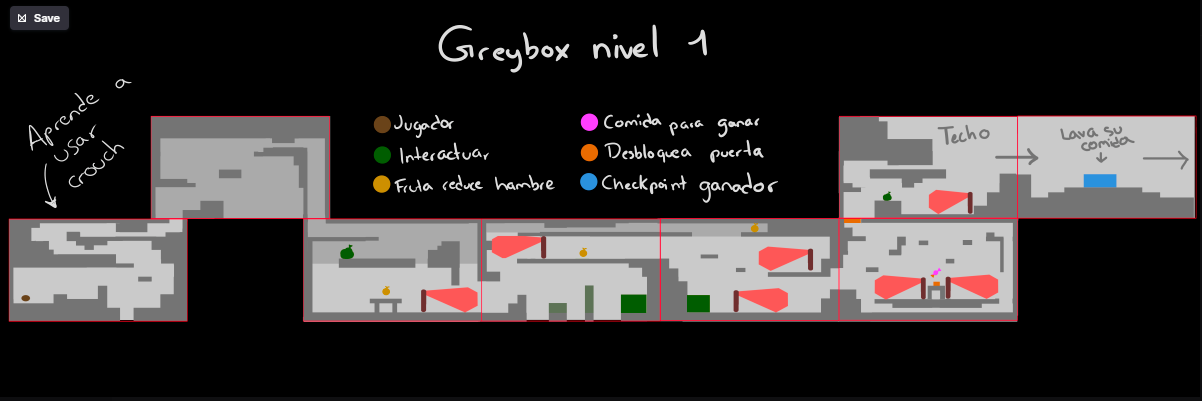 Save
Greybox nivel 1
Aprende a
usar
crouch
Jugador
Interactuar
Fruta reduce hambre
Comida para ganar
Desbloquea puerta
Checkpoint ganador
Techo
Lava su
comida